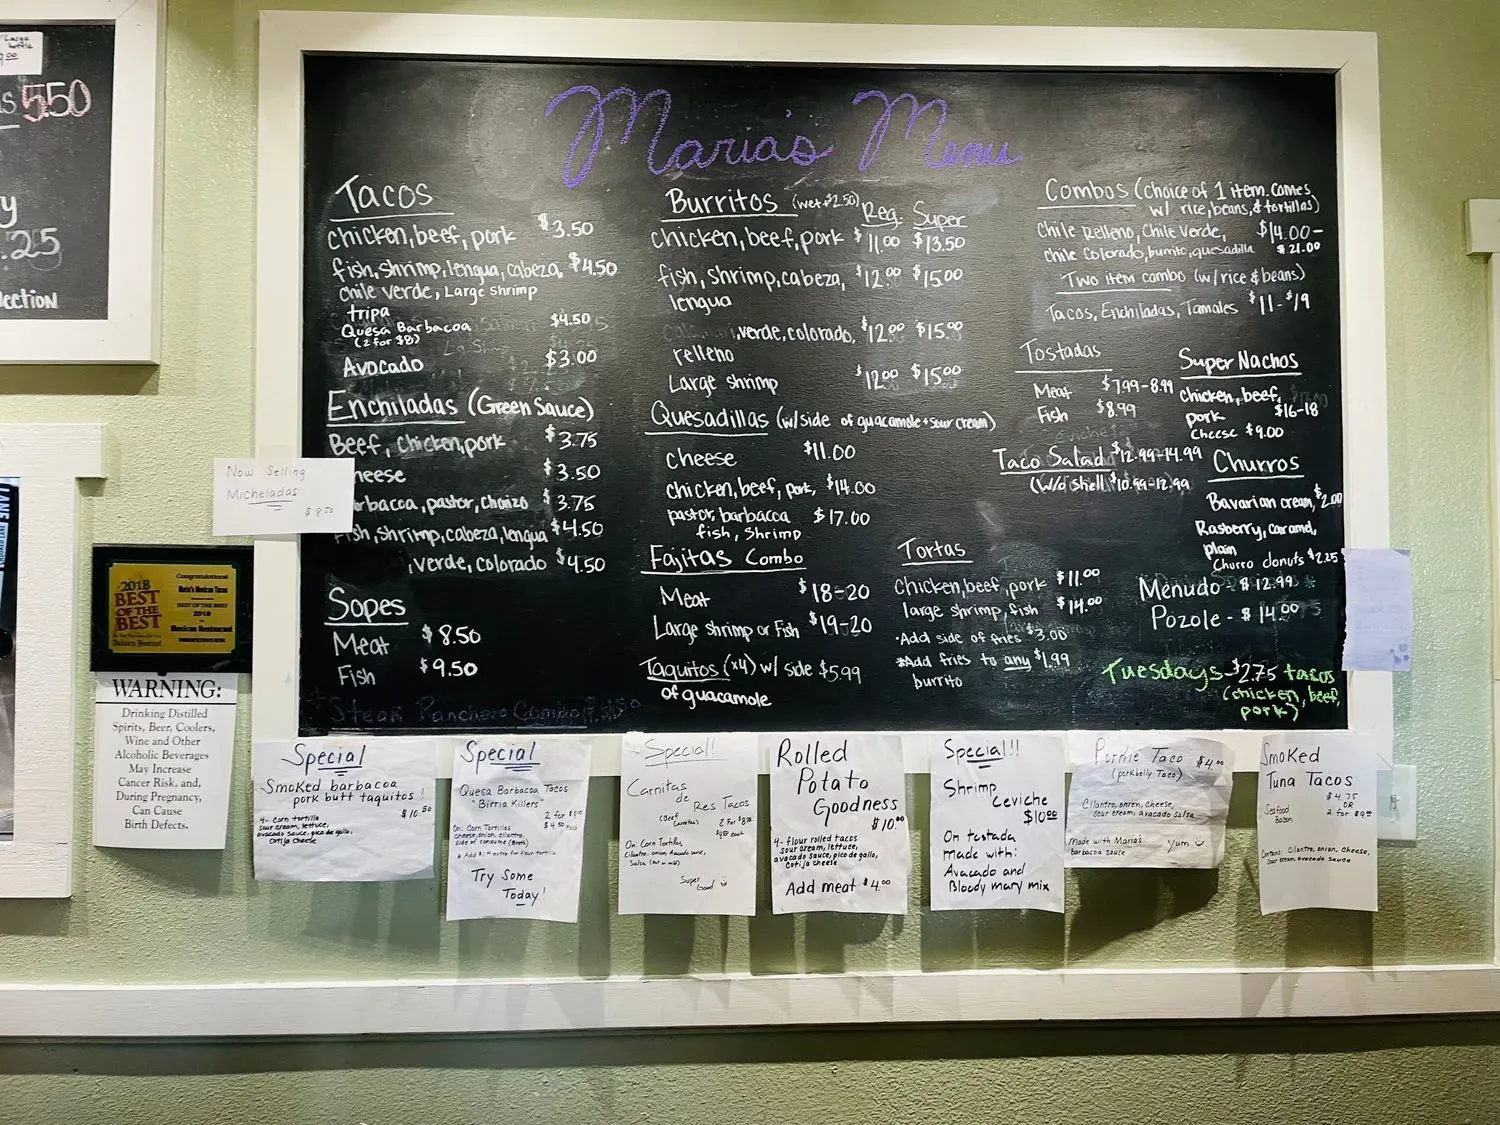 Large
bottle
9.00
s 5.50
y
.25
lection
Maria's Menu
Tacos
chicken, beef, pork $3.50
fish, shrimp, lengua, cabeza, $4.50
chile verde, Large shrimp
tripa
Quesa Barbacoa $4.50
(2 for $8)
Avocado $3.00
Enchiladas (Green Sauce)
Beef, chicken, pork $3.75
heese $3.50
arbacoa, pastor, chorizo $3.75
fish, shrimp, cabeza, lengua $4.50
, verde, colorado $4.50
Sopes
Meat $8.50
Fish $9.50
*Steak Ranchero Combo
Burritos (wet +$2.50) Reg. Super
chicken, beef, pork $11.00 $13.50
fish, shrimp, cabeza, $12.00 $15.00
lengua
, verde, colorado, $12.00 $15.00
relleno
Large shrimp $12.00 $15.00
Quesadillas (w/side of guacamole + sour cream)
cheese $11.00
chicken, beef, pork, $14.00
pastor, barbacoa $17.00
fish, shrimp
Fajitas Combo
Meat $18-20
Large shrimp or Fish $19-20
Taquitos (x4) w/ side $5.99
of guacamole
Combos (choice of 1 item. comes
w/ rice, beans, & tortillas)
Chile Relleno, Chile Verde, $14.00-
chile colorado, burrito, quesadilla $21.00
Two item combo (w/rice & beans)
Tacos, Enchiladas, Tamales $11-$19
Tostadas
Meat $7.99-8.99
Fish $8.99
Super Nachos
chicken, beef,
pork $16-18
Cheese $9.00
Taco Salad $12.99-14.99
(w/o shell $10.99-12.99
Churros
Bavarian cream, $2.00
Rasberry, caramel,
plain
Churro donuts $2.25
Tortas
Chicken, beef, pork $11.00
large shrimp, fish $14.00
•Add side of fries $3.00
*Add fries to any $1.99
burrito
Menudo - $12.99
Pozole - $14.00
Tuesdays-$2.75 tacos
(chicken, beef,
pork)
Now Selling
Micheladas
$8.50
2018
BEST
OF THE
BEST
Congratulations!
Maria's Mexican Tacos
BEST OF THE BEST
2018
Mexican Restaurant
WARNING:
Drinking Distilled
Spirits, Beer, Coolers,
Wine and Other
Alcoholic Beverages
May Increase
Cancer Risk, and,
During Pregnancy,
Can Cause
Birth Defects.
Special
Smoked barbacoa
pork butt taquitos!
$10.50
4- corn tortilla
sour cream, lettuce,
avocado sauce, pico de gallo,
cotija cheese
Special
Quesa Barbacoa Tacos
"Birria Killers"
2 for $8.00
$4.50 each
On: Corn Tortillas
cheese, onion, cilantro,
side of consume (Broth)
* Add $1.00 extra for flour tortilla
Try Some
Today!
Special!
Carnitas
de
Res Tacos
(Beef
Carnitas)
2 For $8.00
$4.50 each
On Corn Tortillas,
cilantro, onion, avocado sauce,
salsa (hot or mild)
Super
Good
Rolled
Potato
Goodness
$10.00
4- flour rolled tacos
sour cream, lettuce,
avocado sauce, pico de gallo,
cotija cheese
Add meat $4.00
Special!!
Shrimp
Ceviche
$10.00
On tostada
made with:
Avocado and
Bloody mary mix
Porkie Taco $4.00
(porkbelly Taco)
Cilantro, onion, cheese,
sour cream, avocado salsa
Made with Maria's
barbacoa sauce
Yum
Smoked
Tuna Tacos
$4.75
OR
2 for $9.00
Seafood
Bacon
Contains: cilantro, onion, cheese,
sour cream, avocado sauce